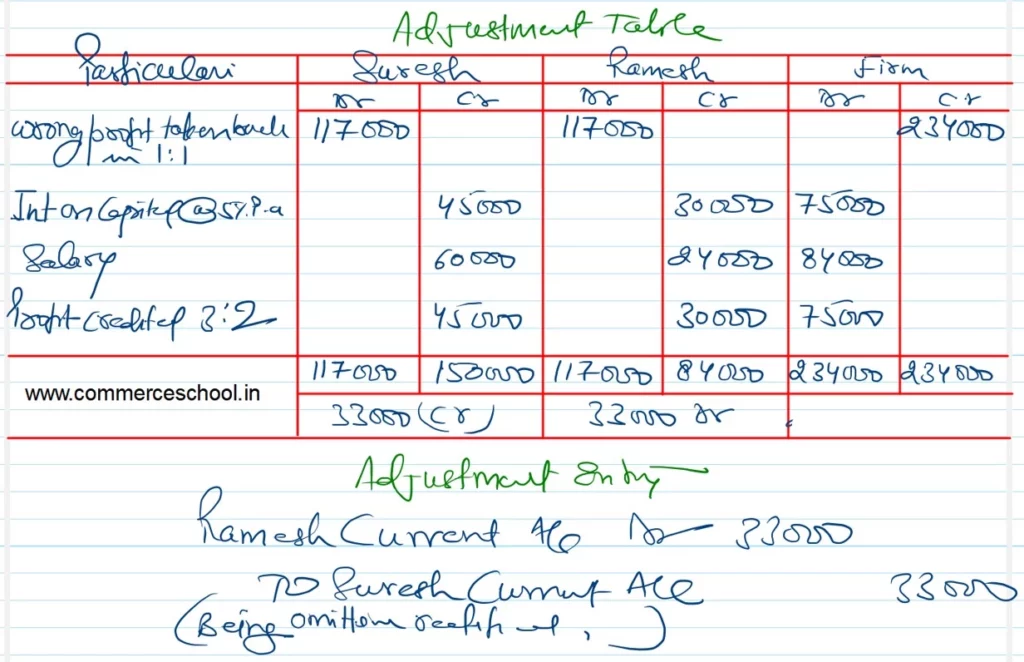 Adjustment Table
Particulars Suresh Ramesh Firm
Dr Cr Dr Cr Dr Cr
wrong profit taken back 117000 117000 234000
in 1:1
Int on Capital @ 5% P.a 45000 30000 75000
Salary 60000 24000 84000
Profit credited 3:2 45000 30000 75000
117000 150000 117000 84000 234000 234000
www.commerceschool.in
33000 (Cr) 33000 Dr
Adjustment Entry
Ramesh Current A/c Dr 33000
To Suresh Current A/c 33000
(Being omittion rectified.)